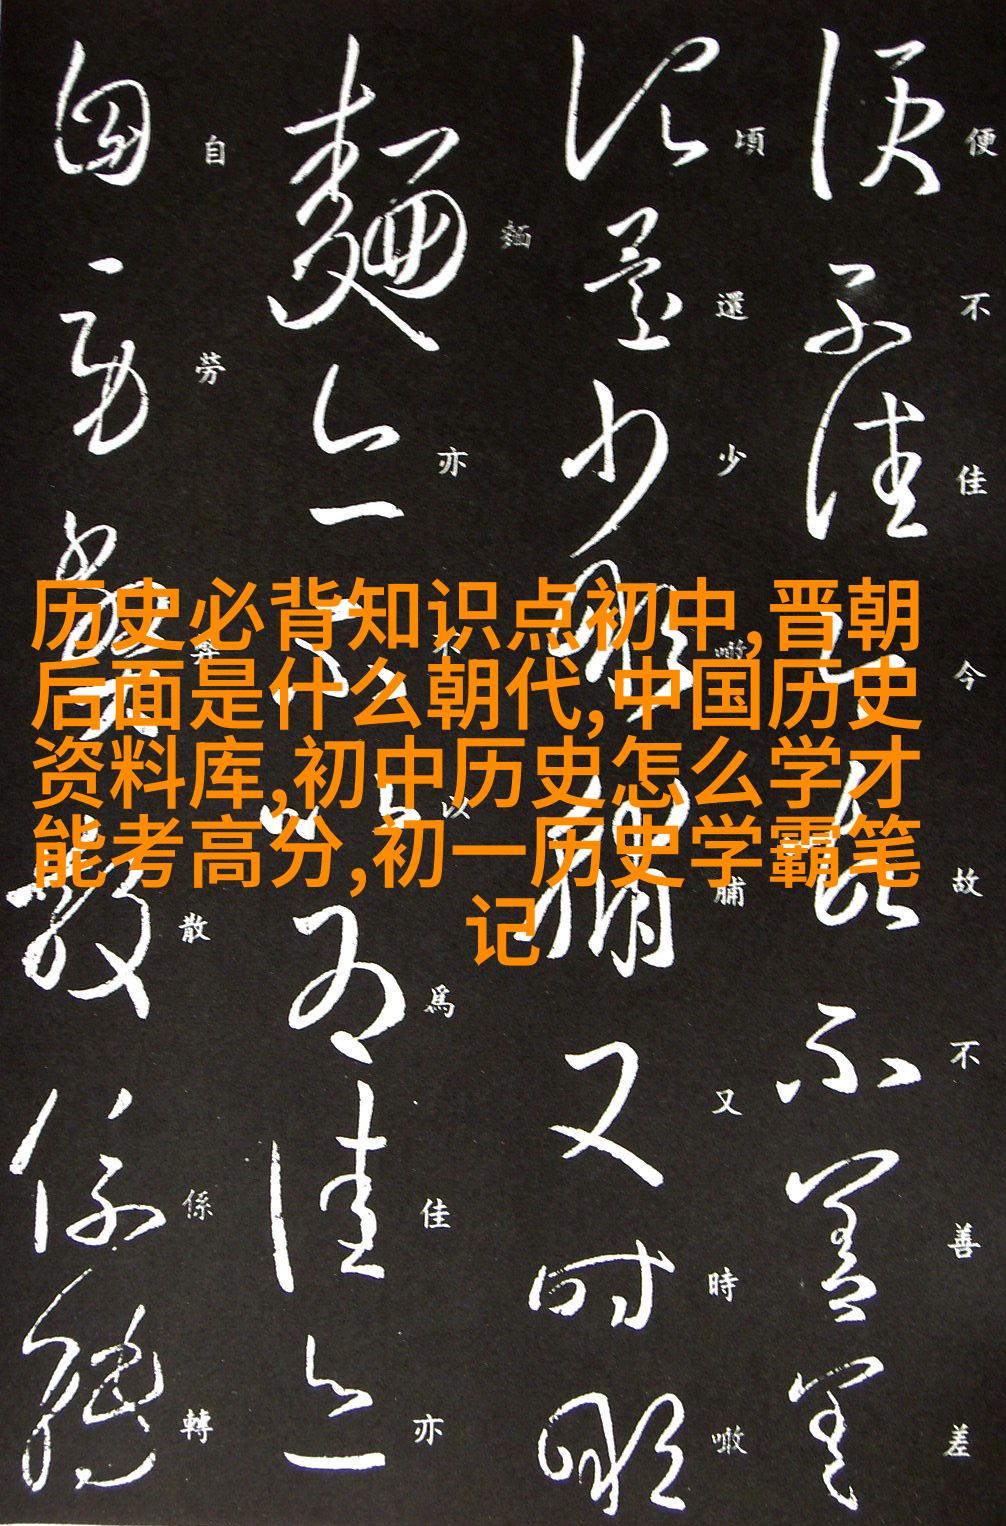 历史必背知识点初中,晋朝
后面是什么朝代,中国历史
资料库,初中历史怎么学才
能考高分,初一历史学霸笔
记
便不佳今故不善差
頃還少噉脯又時噉
麵亦不以為佳亦
自勞弊散係轉